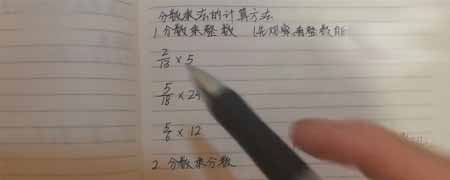 分数乘法的计算方法
1.分数乘整数 (先观察看整数能
2/15 × 5
5/18 × 2
5/6 × 12
2.分数乘分数